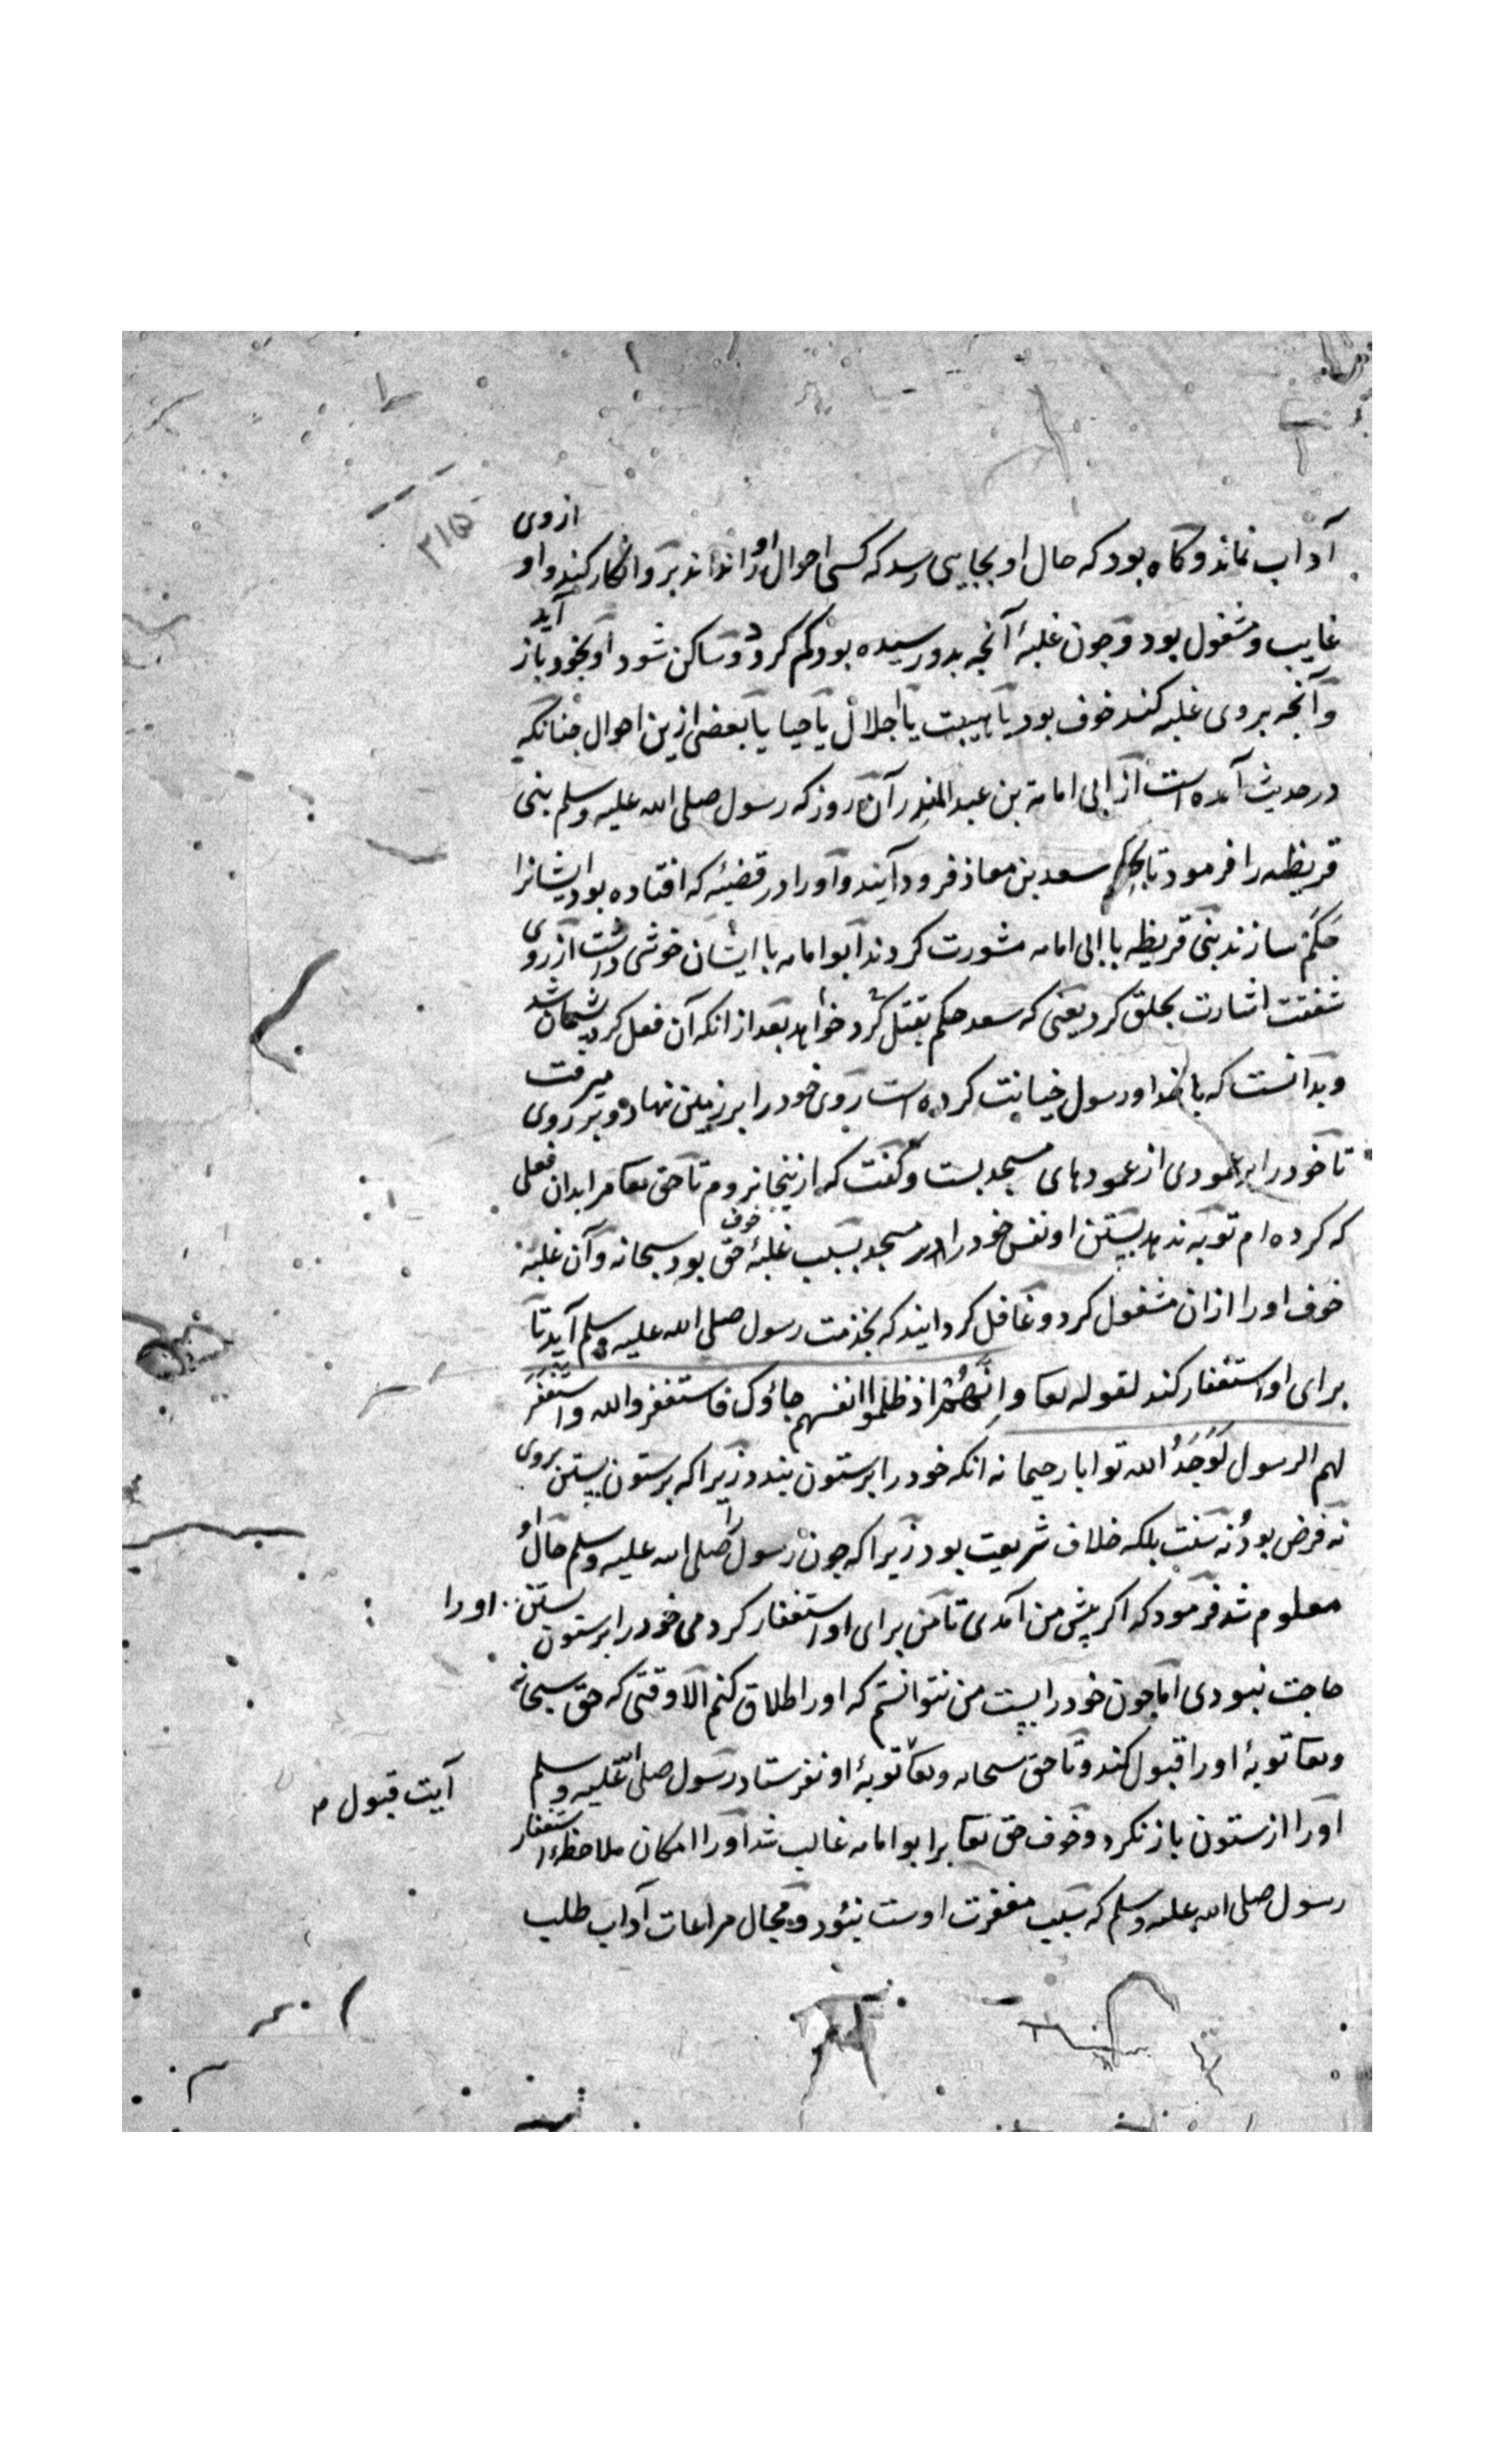 ۲۱۵
آداب نماند و کاه بود که حال او بجایی رسد که کسی احوال او را نداند برو انکار کند و او از وی
غایب و مشغول بود و جون غلبهٔ آنجه بدو رسیده بود کم کردد و ساکن شود او بخود باز آید
و آنجه بر وی غلبه کند خوف بود یا هیبت یا اجلال یا حیا یا بعضی ازین احوال جنانکه
در حدیث آمده است از ابی امامة بن عبد المنذر آن روز که رسول صلی الله علیه وسلم بنی
قریظه را فرمود تا بحکم سعد بن معاذ فرود آیند و او را در قضیهٔ که افتاده بود ایشانرا
حَکَم سازند بنی قریظه با ابی امامه مشورت کردند ابو امامه با ایشان خوشی داشت از روی
شفقت اشارت بحلق کرد یعنی که سعد حکم بقتل خواهد کرد بعد از انکه آن فعل کرد پشیمان شد
و بدانست که با خدا و رسول خیانت کرده است روی خود را بر زمین نهاد و بر روی میرفت
تا خود را بر عمودی از عمودهای مسجد بست و کفت که ازینجا نروم تا حق تعا مرا بدان فعلی
که کرده ام توبه ندهد بستن او نفس خود را در مسجد بسبب غلبهٔ خوف حق بود سبحانه و آن غلبهٔ
خوف او را از ان مشغول کرد و غافل کردانیند که بخدمت رسول صلی الله علیه وسلم آید تا
برای او استغفار کند لقوله تعا و انهم اذ ظلموا انفسهم جاؤک فاستغفروا الله و استغفر
لهم الرسول لَوَجَدُ الله توابا رحیما نه انکه خود را بر ستون بندد زیرا که بر ستون بستن بروی
نه فرض بود نه سنت بلکه خلاف شریعت بود زیرا که جون رسول را صلی الله علیه وسلم حال او
معلوم شد فرمود که اکر پیش من آمدی تا من برای او استغفار کردمی خود را بر ستون بستن او را
حاجت نبودی اما جون خود را ببست من نتوانستم که او را اطلاق کنم الا وقتی که حق سبحانه
وتعا توبهٔ او را قبول کند و تا حق سبحانه وتعا توبهٔ او نفرستاد رسول صلی الله علیه وسلم
آیت قبول م
او را از ستون باز نکرد و خوف حق تعا بر ابو امامه غالب شد او را امکان ملاحظهٔ استغفار
رسول صلی الله علیه وسلم که سبب مغفرت اوست نبود و مجال مراعات آداب طلب